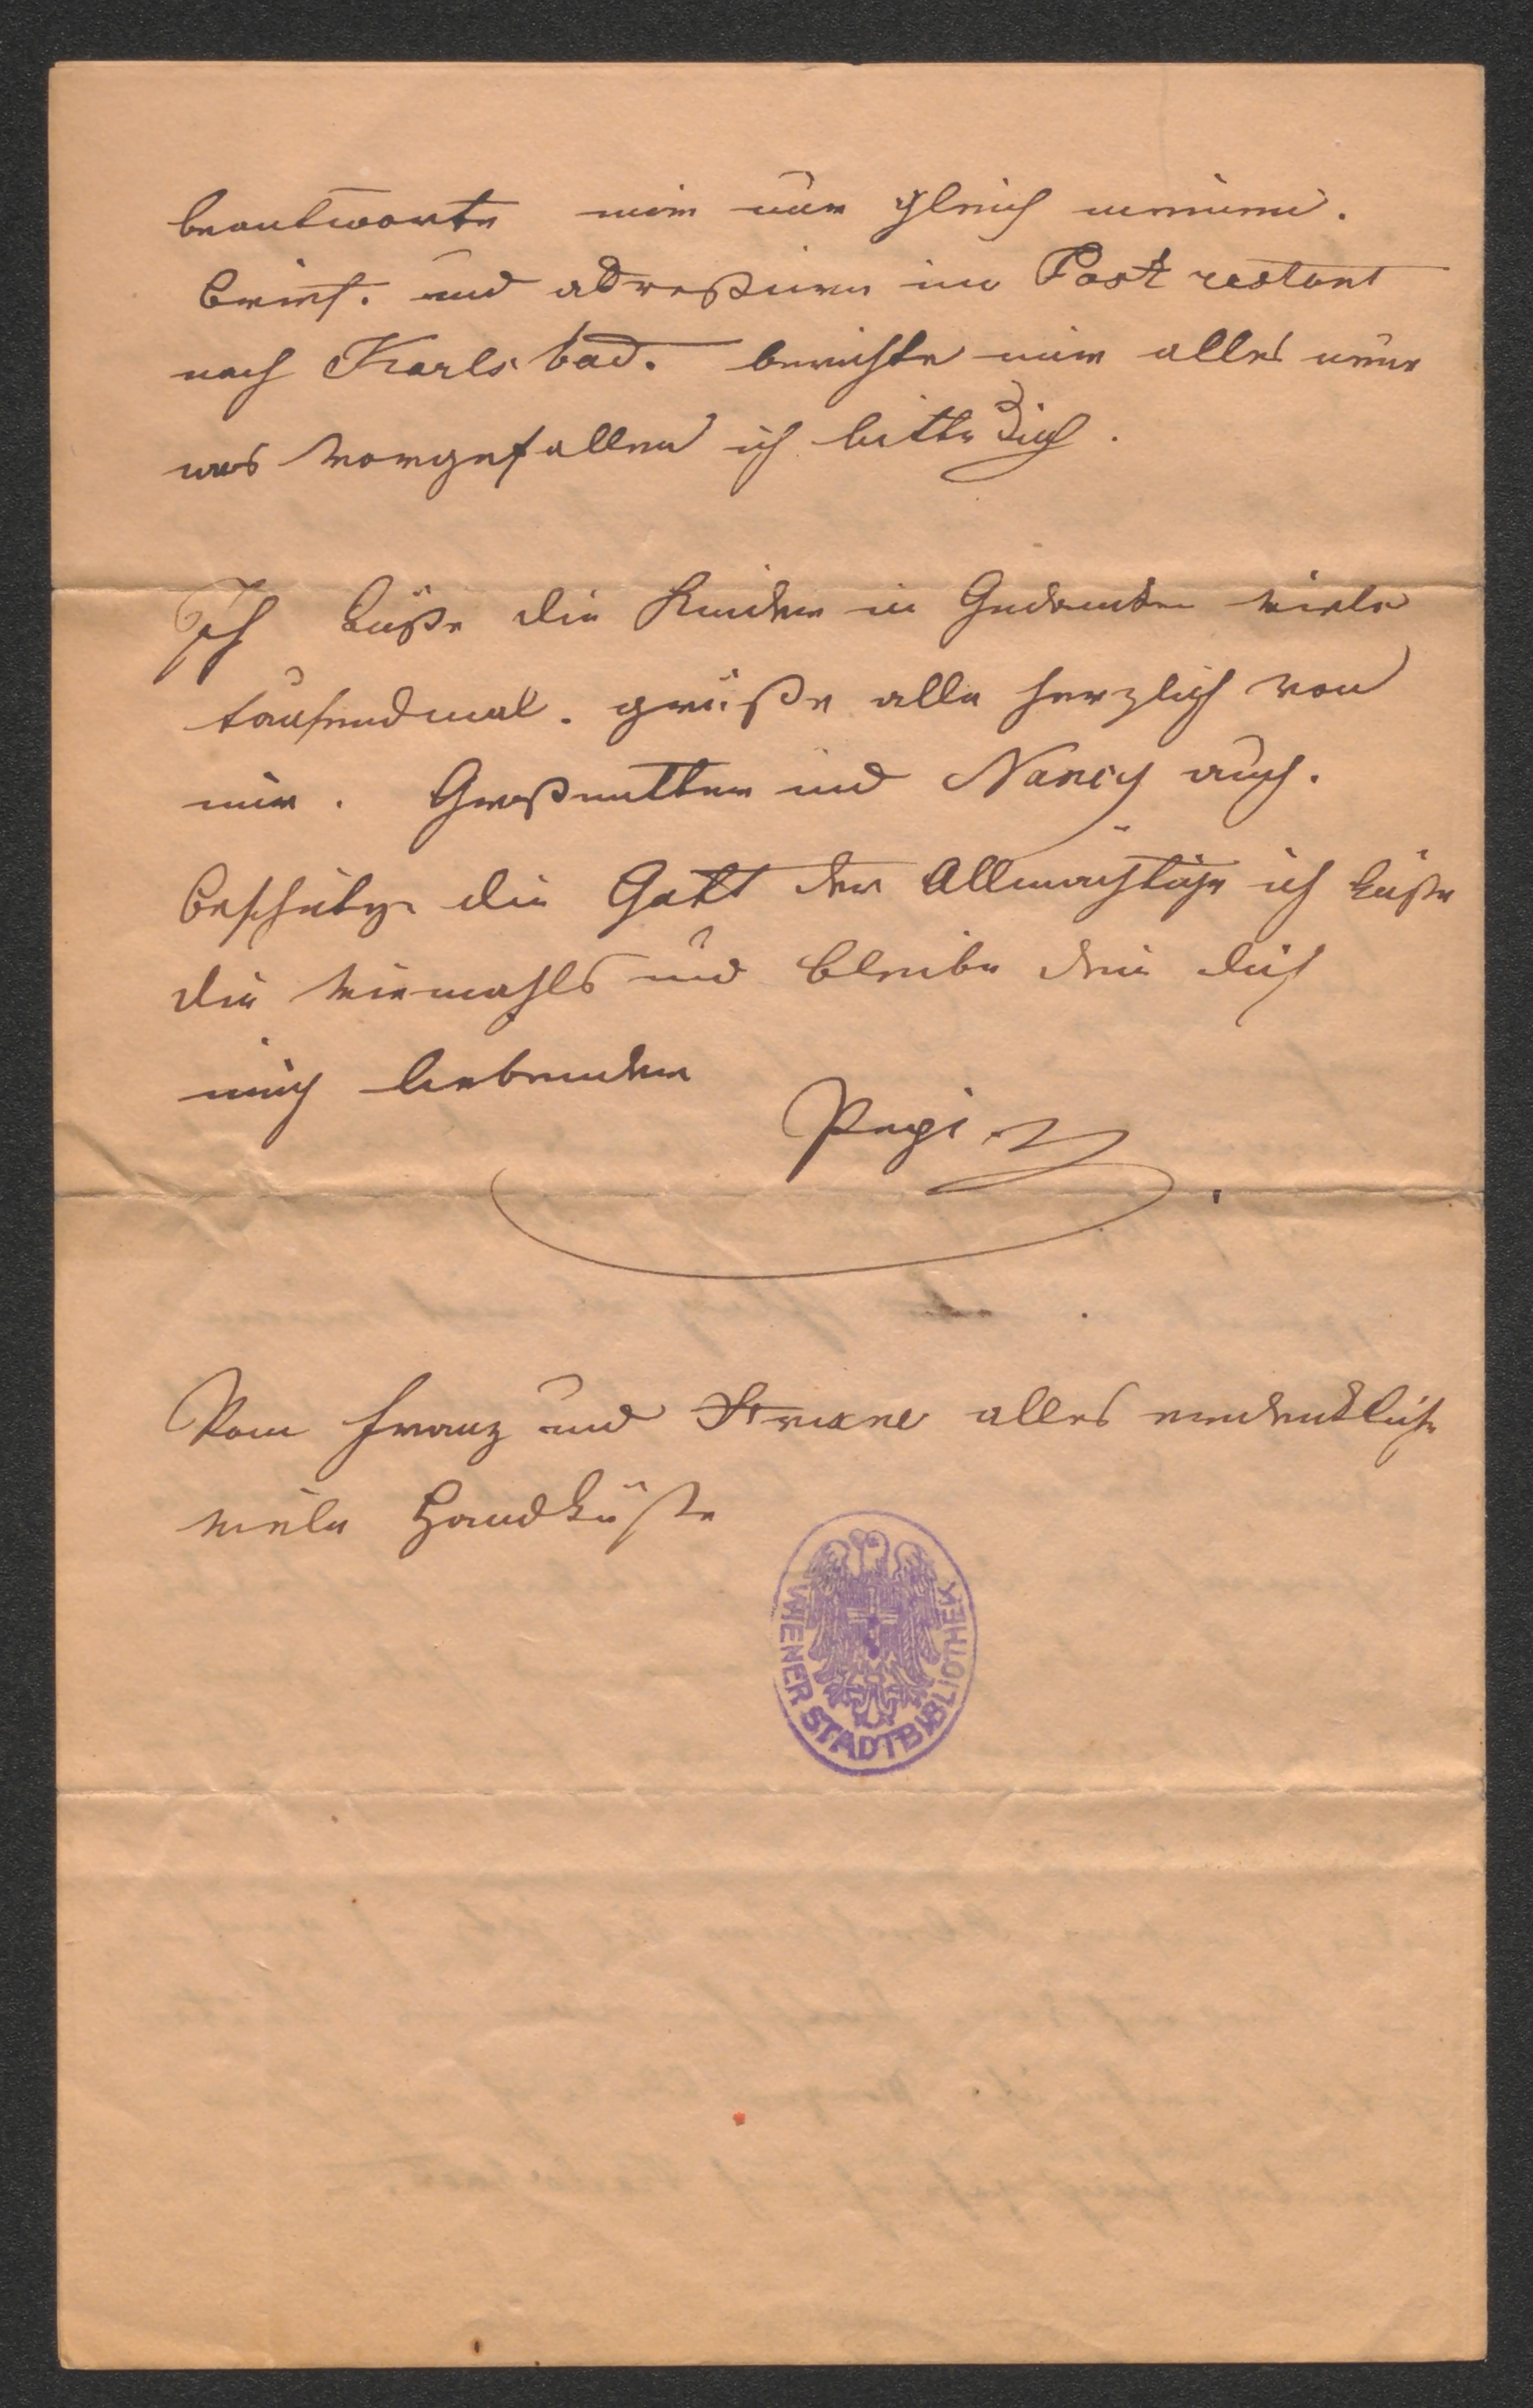 beantworte mir nur gleich meinen.
Brief. und adreßiere in Post restant
nach Karlsbad. berichte mir alles neue
was vorgefallen ich bitte Dich.
Ich küße die Kinder in Gedanken viele
tausendmal. grüße alle herzlich von
mir. Großmutter und Nancy auch.
Beschütze die Gott der Allmächtige ich küße
die viemahls und bleibe dein dich
innig liebender
Pepi
Vom Franz und alles erdenkliche
viele Handküße
WIENER STADTBIBLIOTHEK